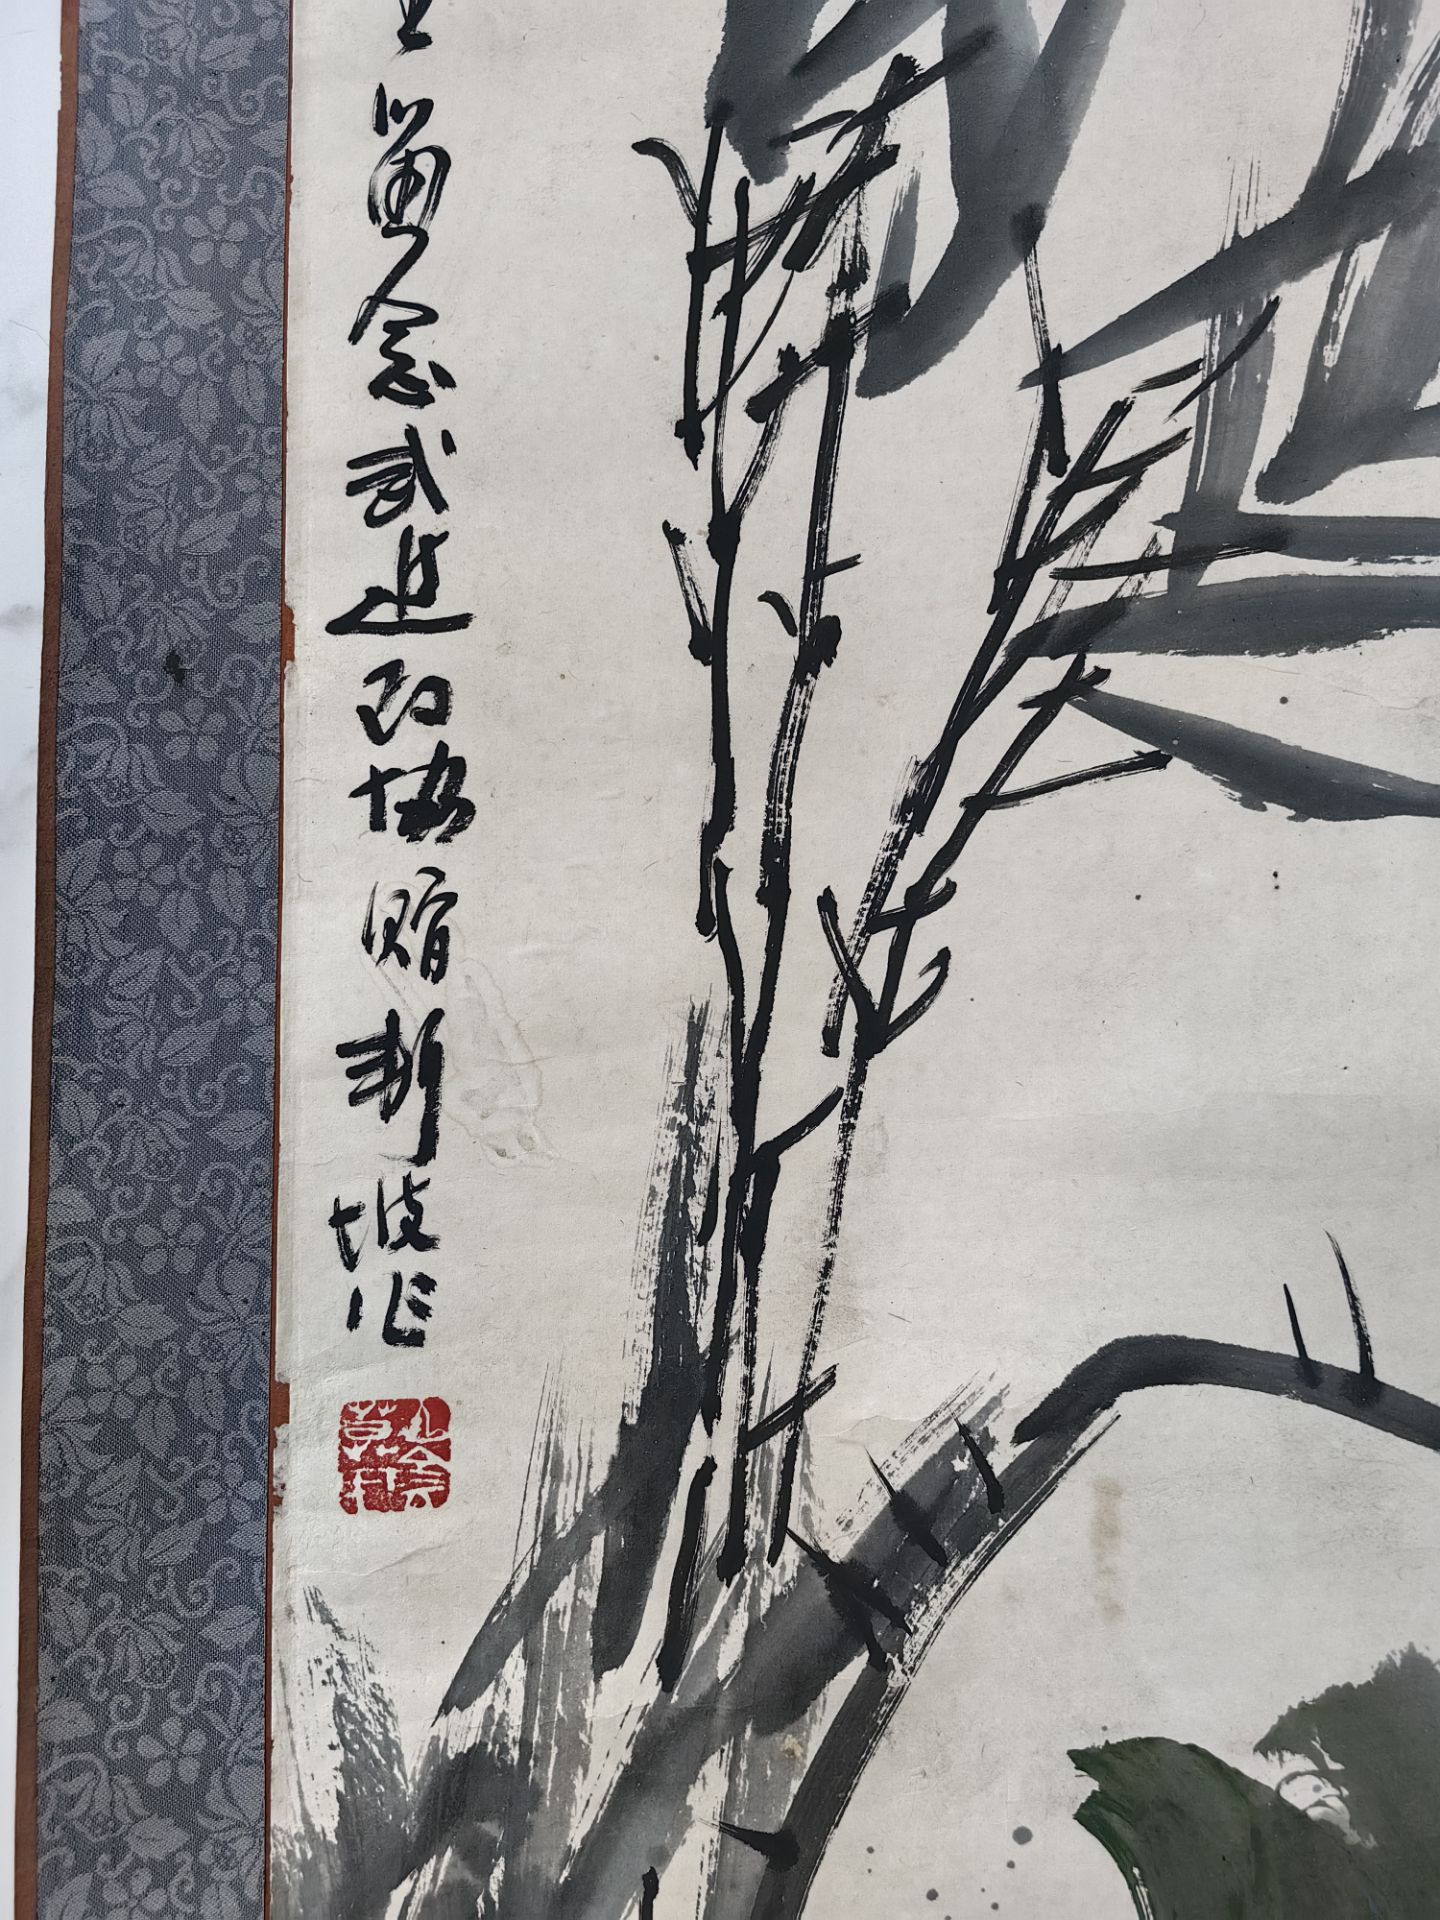 留念武进政协赠新坡作